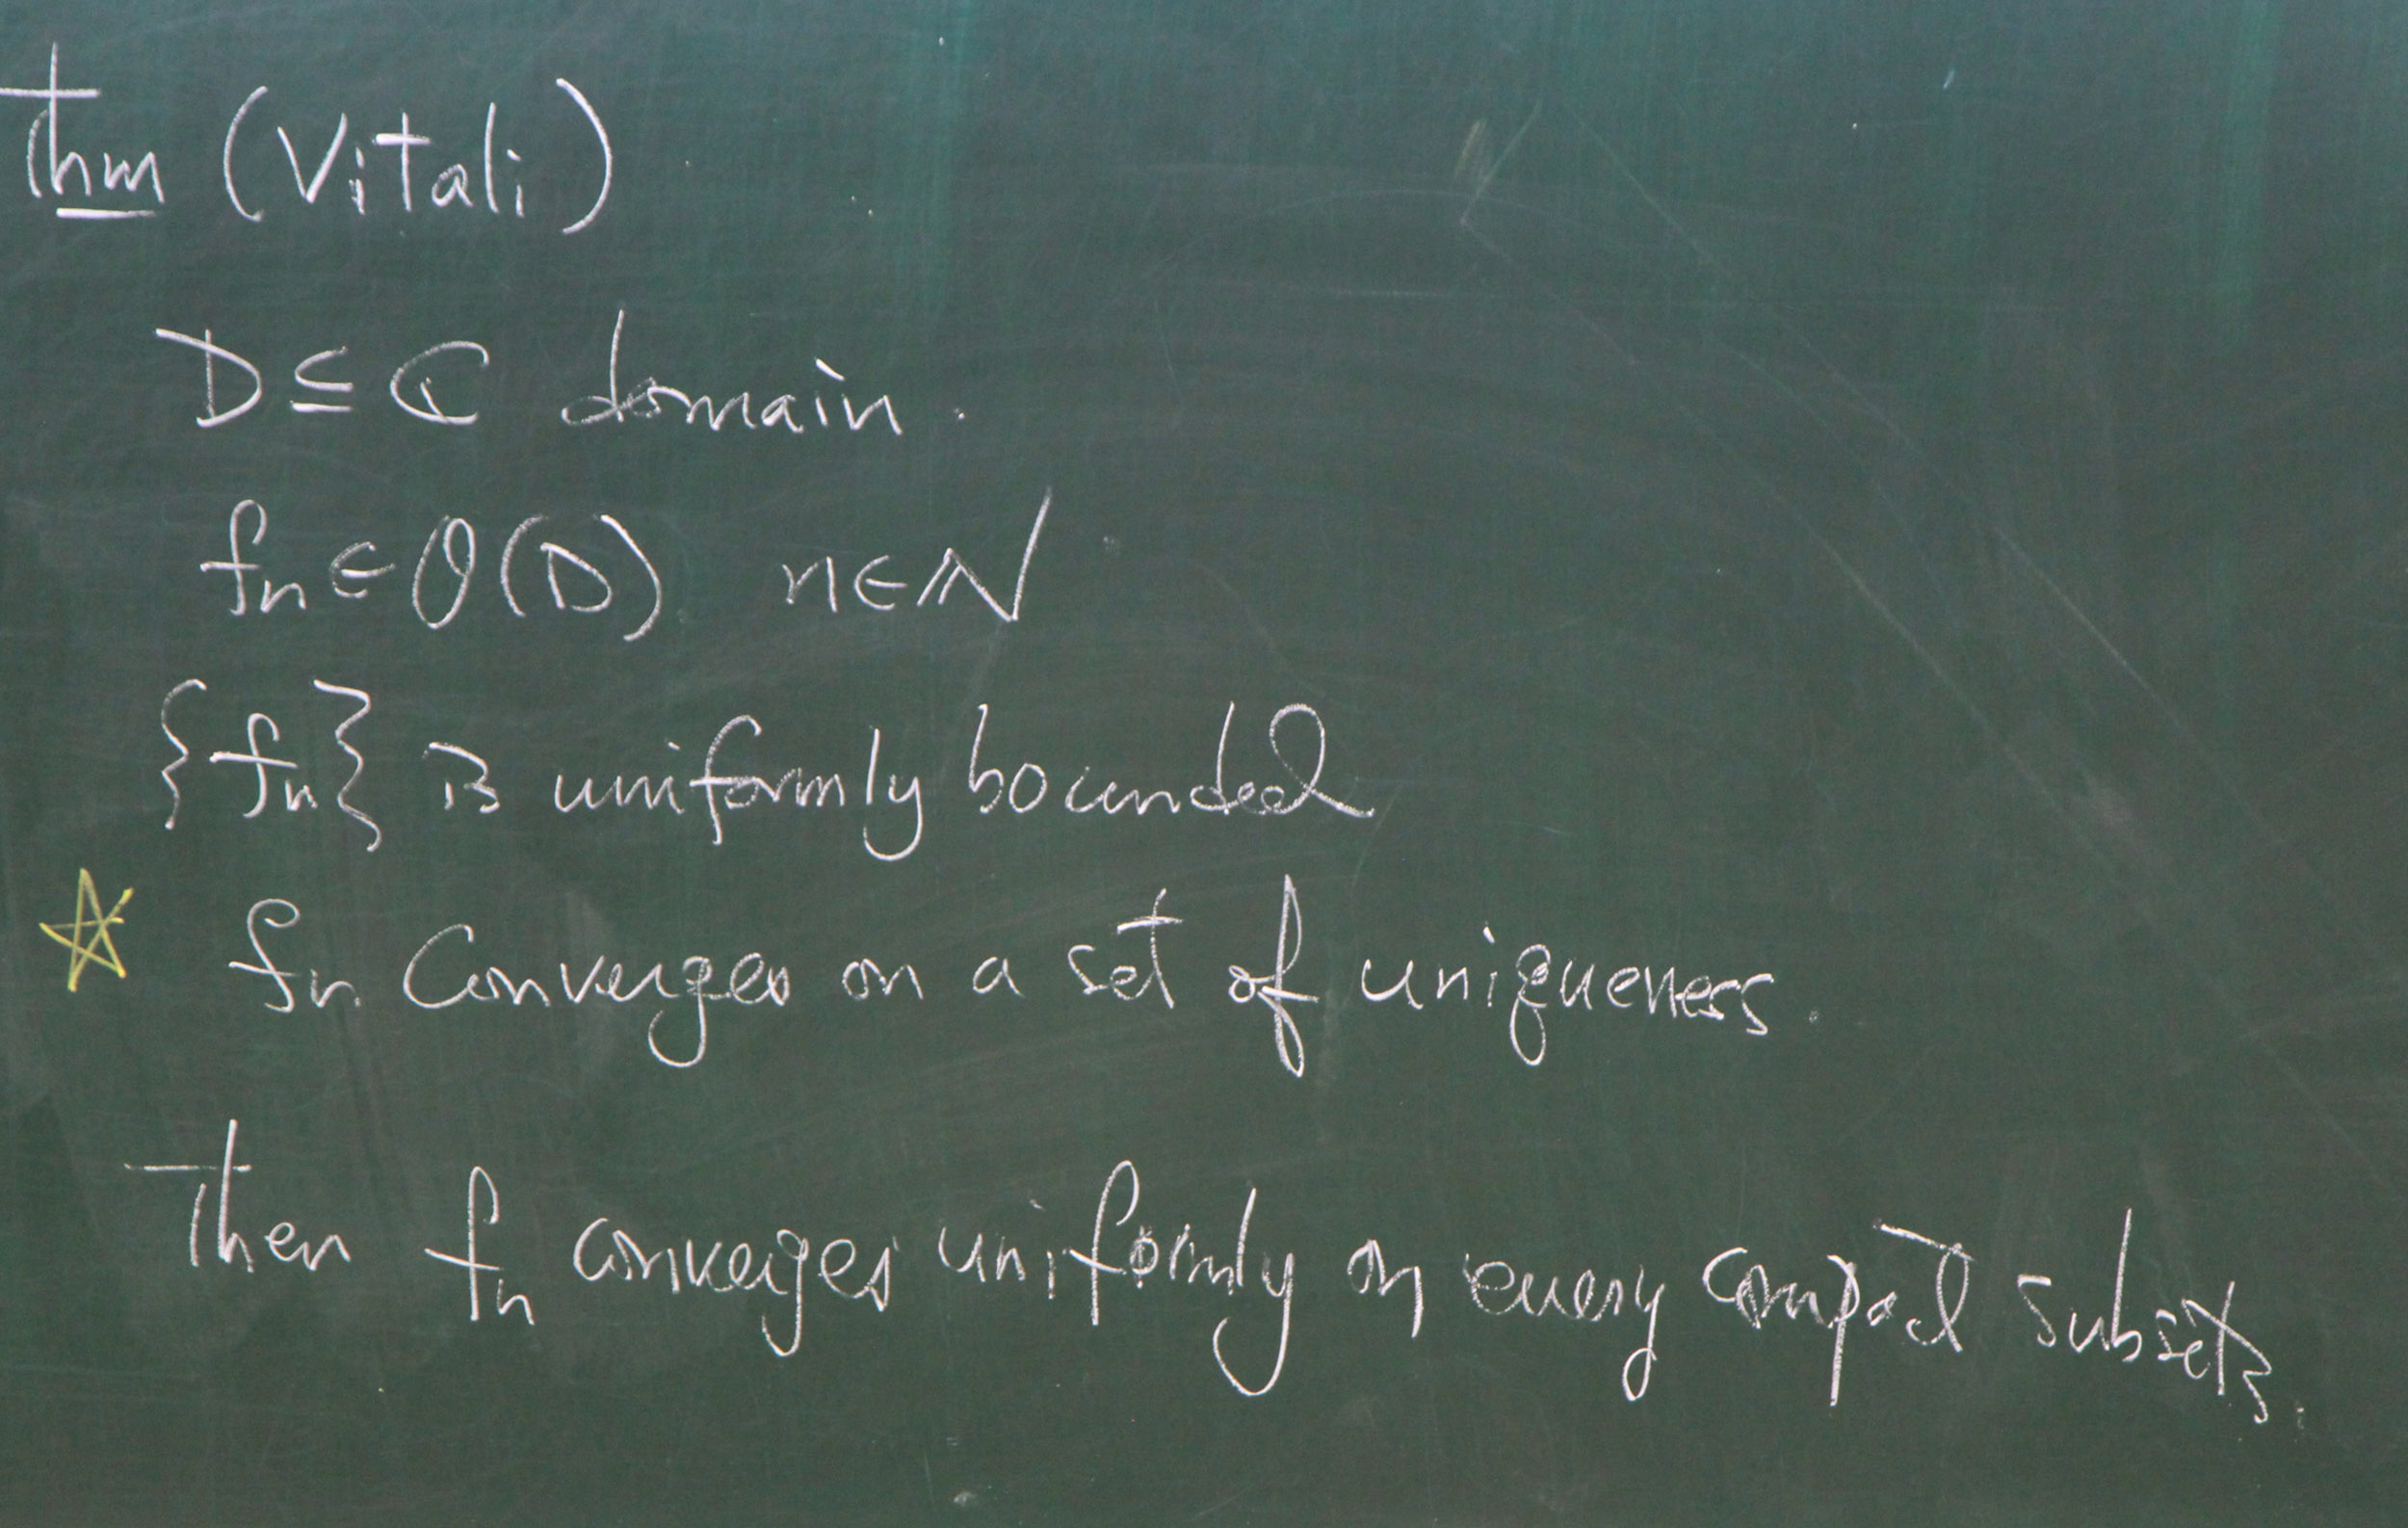 Thm (Vitali)
D ⊆ ℂ domain.
fn ∈ O(D) n ∈ ℕ
{fn} is uniformly bounded
☆ fn converges on a set of uniqueness.
Then fn converges uniformly on every compact subsets.